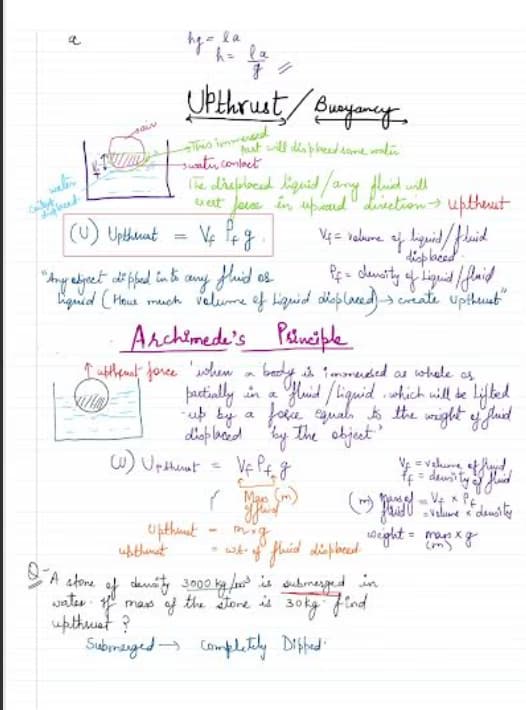 a
hg = la
h = la/g
Upthrust / Buoyancy
air
This immersed
part will displaced some water
water contact
The displaced liquid/any fluid will
exert force in upward direction → upthrust
Vf
water
displaced
(U) Upthrust = Vf Pf g
Vf = volume of liquid/fluid
displaced
Pf = density of liquid/fluid
"Any object dipped into any fluid or
liquid (How much volume of liquid displaced) → create upthrust"
Archimede's Principle
↑ upthrust force
'when a body is immersed as whole or
partially in a fluid/liquid, which will be lifted
up by a force equals to the weight of fluid
displaced by The object'
(U) Upthrust = Vf Pf g
Mass (m)
of fluid
Upthrust = m×g
upthrust = wt. of fluid displaced
Vf = volume of fluid
Pf = density of fluid
(m) mass of fluid = Vf × Pf
= volume × density
weight = mass × g
(m)
Q- A stone of density 3000 kg/m³ is submerged in
water. If mass of the stone is 30kg. find
upthrust ?
Submerged → Completely Dipped.